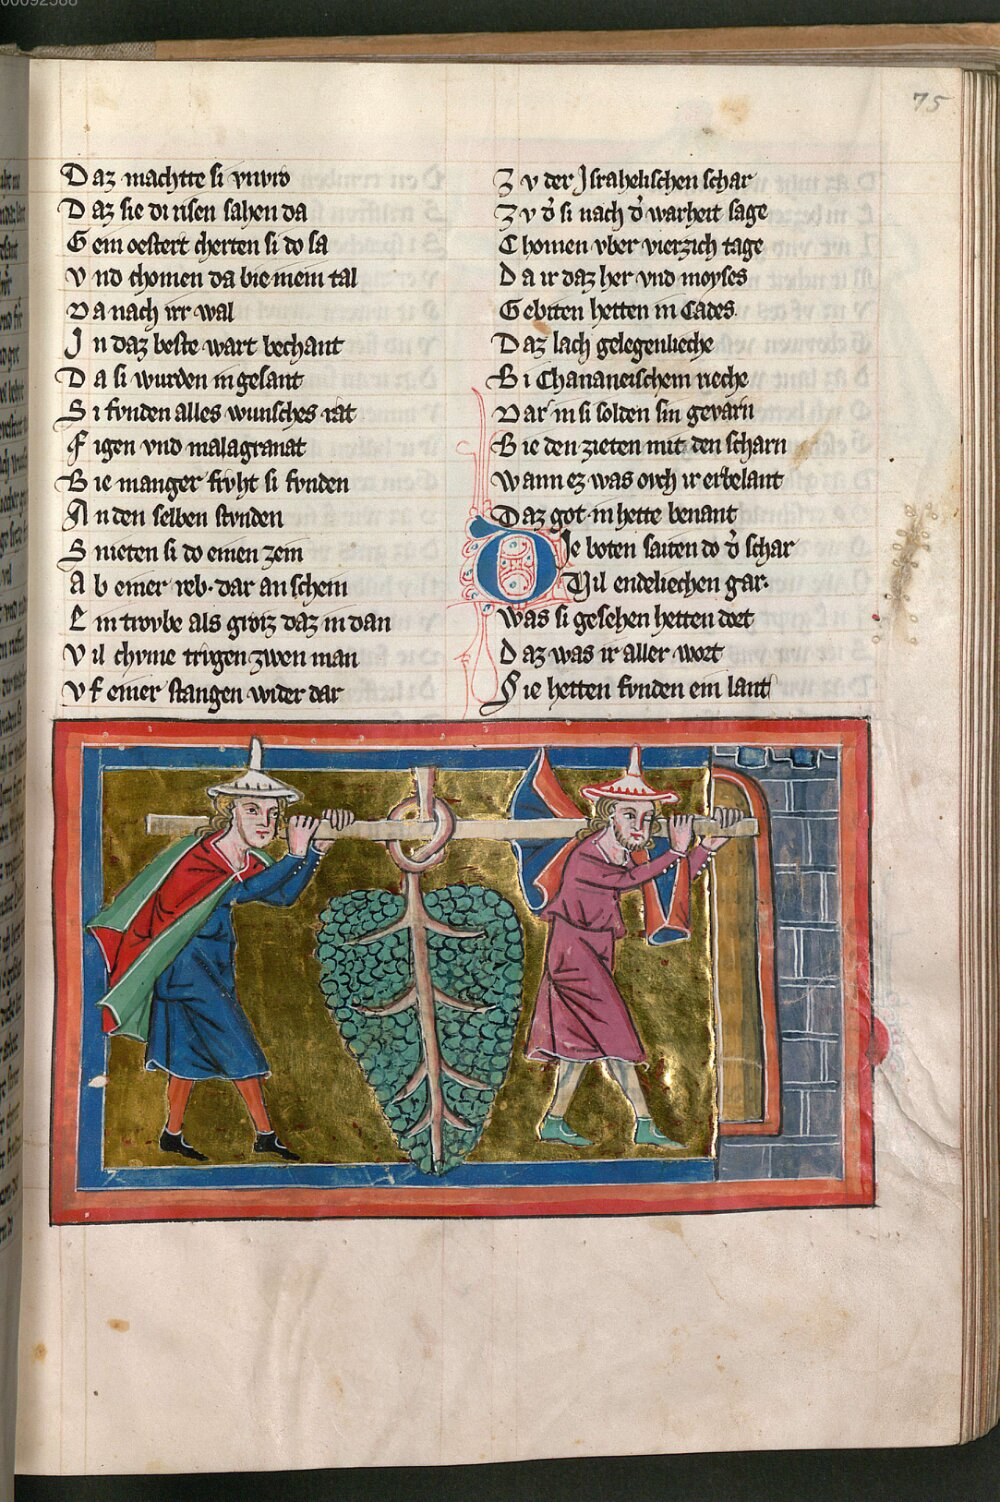 00092588
75
Daz machtte si vnvro
Daz sie di risen sahen da
Gein oestert cherten si do sa
Vnd chomen da bie in ein tal
Da nach irr wal
In daz beste wart bechant
Da si wurden in gesant
Si fvnden alles wunsches rat
Figen vnd malagranat
Bie manger frvht si fvnden
An den selben stvnden
Snieten si do einen zein
Ab einer reb. dar an schein
Ein trovbe als groz daz in dan
Vil chvme trvgen zwen man
Vf einer stangen wider dar
Zv der Israhelischen schar
Zv d̉ si nach d̉ warheit sage
Chomen vber vierzich tage
Da ir daz her vnd moyses
Gebiten hetten in Cades.
Daz lach gelegenlieche
Bi Chananeischem rieche
Dar in si solden sin gevarn
Bie den zieten mit den scharn
Wann ez was ovch ir erbelant
Daz got in hette benant
Die boten saiten do d̉ schar
Vil endeliechen gar.
Was si gesehen hetten dort
Daz was ir aller wort
Sie hetten fvnden ein lant